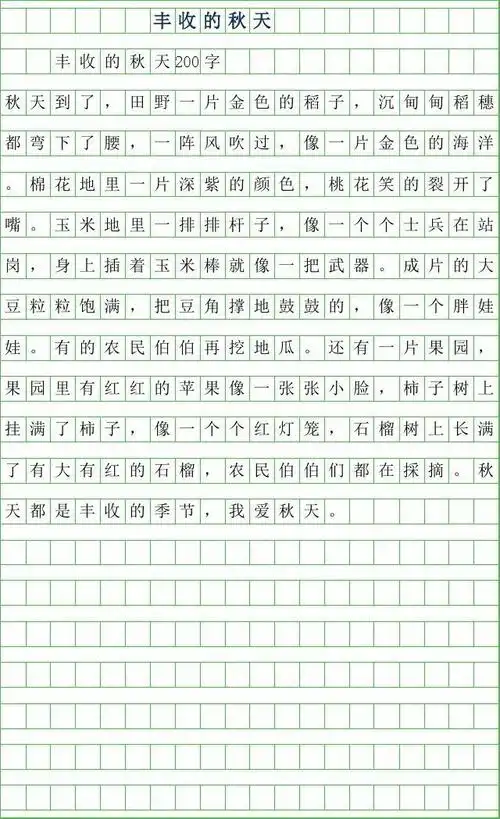 丰收的秋天
丰收的秋天200字
秋天到了，田野一片金色的稻子，沉甸甸稻穗
都弯下了腰，一阵风吹过，像一片金色的海洋
。棉花地里一片深紫的颜色，桃花笑的裂开了
嘴。玉米地里一排排杆子，像一个个士兵在站
岗，身上插着玉米棒就像一把武器。成片的大
豆粒粒饱满，把豆角撑地鼓鼓的，像一个胖娃
娃。有的农民伯伯再挖地瓜。还有一片果园，
果园里有红红的苹果像一张张小脸，柿子树上
挂满了柿子，像一个个红灯笼，石榴树上长满
了有大有红的石榴，农民伯伯们都在採摘。秋
天都是丰收的季节，我爱秋天。